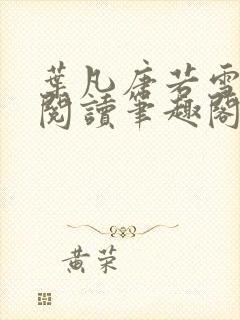 葉凡唐若雪
閱讀筆趣閣
黃荣